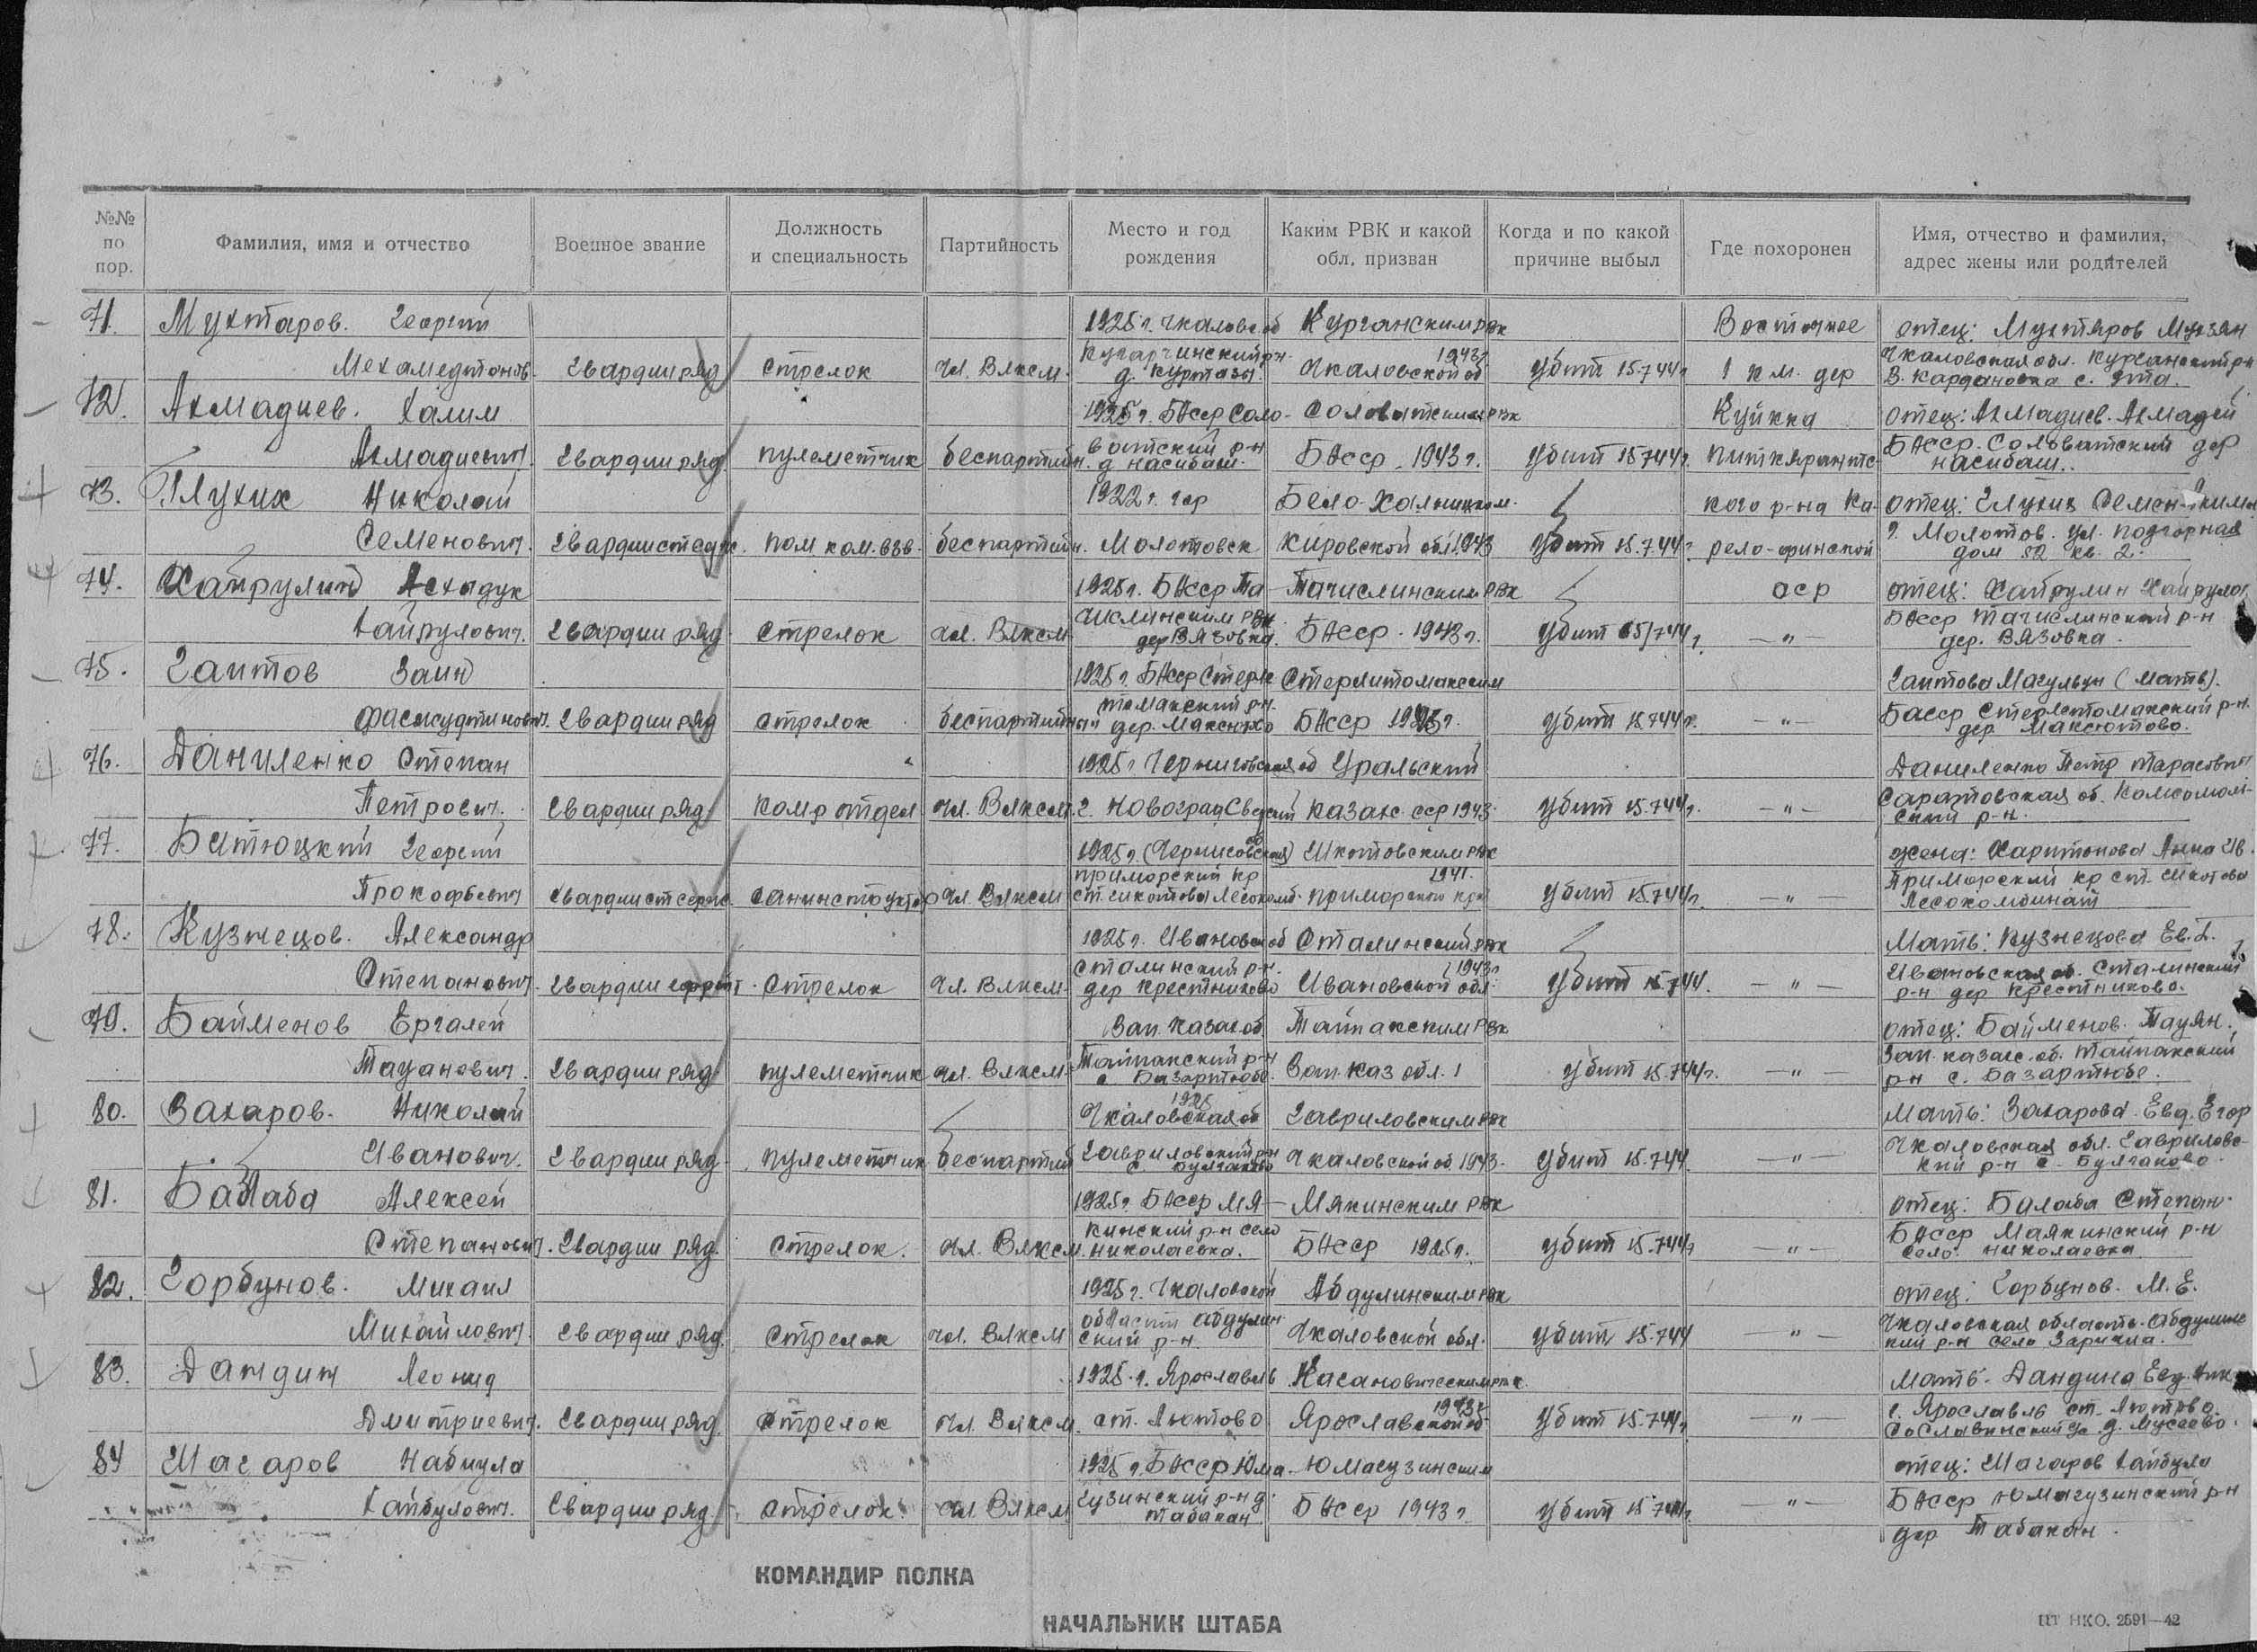 №№ по пор. Фамилия, имя и отчество Военное звание Должность и специальность Партийность Место и год рождения Каким РВК и какой обл. призван Когда и по какой причине выбыл Где похоронен Имя, отчество и фамилия, адрес жены или родителей
71. Мухтаров. Георгий 1925 г. Чкаловс об Курганским рвк Восточнее отец: Мухтяров
Мехамедтонов. Гвардии ряд стрелок чл. Влксм. Кугарчинский р-н. д. Куртазы. 1943 г Чкаловской об убит 15.7.44 г 1 км. дер Чкаловская обл. р-н В. Кардановка с.
72. Ахмадиев. Халим 1925 г. БАсср Сало- Саловатским рвк Куйкка отец: Ахмадиев. Ахмадей
Ахмадиевич. Гвардии ряд пулеметчик беспартийн. ватский р-н д. Насибаш. БАсср. 1943 г. убит 15 7 44 г. питкярантс- БАсср. Саловатский дер насибаш..
73. Глухих Николай 1922 г. гор Бело-Халницком. кого р-на Ка- отец: Глухих Семен
Семенович. Гвардии ст серж. пом ком. взв. беспартийн. Молотовск Кировской обл 1943 убит 15.7.44 г рело-финской г. Молотов. ул. подгорная дом 52 кв. 2.
74. Хайрулин Асхадук 1925 г. БАсср Та Тачислинским рвк сср отец: Хайрулин Хайрула
Хайрулович. Гвардии ряд стрелок чл. Влксм числинским рвк. дер Вязовка. БАсср. 1943 г. убит 15/7 44 г. —"— БАсср Тачислинский р-н дер. Вязовка.
75. Гаитов Заин 1925 г. БАсср Стерли Стерлитомакским Гаитова (мать).
Гвардии ряд стрелок беспартийный томакский р-н. дер. Максютово БАсср 1943 г. убит 15.7.44 г. —"— Басср Стерлетомакский р-н. дер. Максютово.
76. Даниленко Степан 1925 г Черниговская об Уральский Даниленко Петр Тарасович
Петрович. Гвардии ряд комр отдел чл. Влксм. г. Новоград Сверский казахс. сср 1943. убит 15.7.44 г. —"— Саратовская об. Комсомоль- ский р-н.
77. Битюцкий Георгий 1925 г. (Черниговская) об Шкотовским рвк жена: Харитонова Анна Ив.
Прокофьевич Гвардии ст серж. Санинструктор чл. Влксм приморский кр ст. шкотова Лесокомб. 1941. приморского кра убит 15.7.44 г. —"— Приморский кр ст. Шкотово Лесокомбинат
78. Кузнецов. Александр 1925 г. Ивановск об Сталинский рвк Мать: Кузнецова Ев.
Степанович. Гвардии ефрейт. Стрелок чл. Влксм Сталинский р-н. дер Крестниково 1943 г Ивановской обл. убит 15.7.44. —"— Ивановская об. Сталинский р-н дер Крестниково.
79. Байменов Ергалей Зап. Казах об Тайпакским рвк отец: Байменов. Тауян.
Тауанович. Гвардии ряд пулеметчик чл. Влксм. Тайпакский р-н с Базартюбе. Зап. Каз обл. убит 15.7.44 г. —"— Зап. казахс. об. Тайпакский р-н с. Базартюбе.
80. Захаров. Николай 1925 Чкаловская об Гавриловским рвк Мать: Захарова. Евд. Егор
Иванович. Гвардии ряд. пулеметчик беспартий Гавриловский р-н с Булгаково Чкаловской об. 1943. убит 15.7.44 —"— Чкаловская обл. Гавриловс- кий р-н с. Булгаково.
81. Балаба Алексей 1925 г. БАсср мя- Мякинским рвк отец: Балаба Степан.
Степанович. Гвардии ряд. Стрелок. чл. Влксм. кинский р-н село николаевка. БАсср 1925 г. убит 15.7.44 г —"— БАсср Маякинский р-н село. николаевка
82. Горбунов. Михаил 1925 г. Чкаловской Абдулинским рвк отец: Горбунов. М. Е.
Михайлович. Гвардии ряд. стрелок чл. Влксм области абдулин- ский р-н. Чкаловской обл. убит 15.7.44 —"— Чкаловская область. абдулинс кий р-н село Зарикла.
83. Дандин Леонид 1925. г. Ярославль мать. Дандина Евд.
Дмитриевич. Гвардии ряд. Стрелок чл. Влксм. ст. Лютово 1943 г Ярославской об убит 15.7.44 г —"— г. Ярославль ст. Лютово. д. Мусеево.
84 Шагаров Набиула 1925 г. БАсср Юма- Юмагузинским отец: Шагаров Хайбула
Хайбулович. Гвардии ряд. стрелок. чл. Влксм гузинский р-н д. Табакан БАсср 1943 г. убит 15.7.44 г. —"— БАсср Юмагузинский р-н дер Табакан.
КОМАНДИР ПОЛКА
НАЧАЛЬНИК ШТАБА
ЦТ НКО. 2591—42